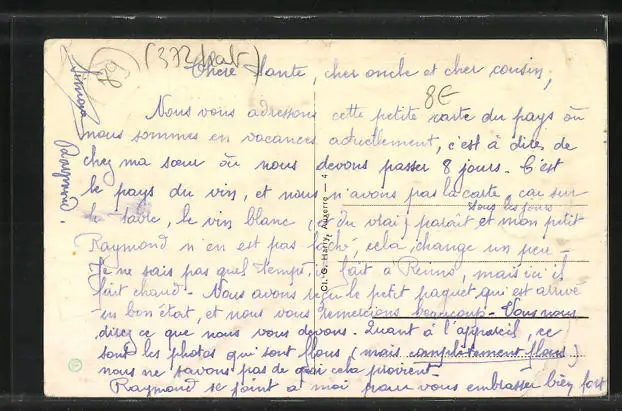 (372 hab)
89
8€
Chère Tante, cher oncle et cher cousin,
Nous vous adressons cette petite carte du pays où
nous sommes en vacances actuellement, c'est à dire, de
chez ma sœur où nous devons passer 8 jours. C'est
le pays du vin, et nous n'avons pas la carte, car sur
tous les jours
la table, le vin blanc (et du vrai) paraît et mon petit
Raymond n'en est pas fâché, cela change un peu -
Je ne sais pas quel temps il fait à Reims, mais ici il
fait chaud - Nous avons reçu le petit paquet qui est arrivé
en bon état, et nous vous remercions beaucoup - Vous nous
direz ce que nous vous devons - Quant à l'appareil, ce
sont les photos qui sont flous (mais complètement flous)
nous ne savons pas de quoi cela provient -
Raymond se joint à moi pour vous embrasser bien fort
Simone
Raymond
Cl. G. Harry, Auxerre — 4